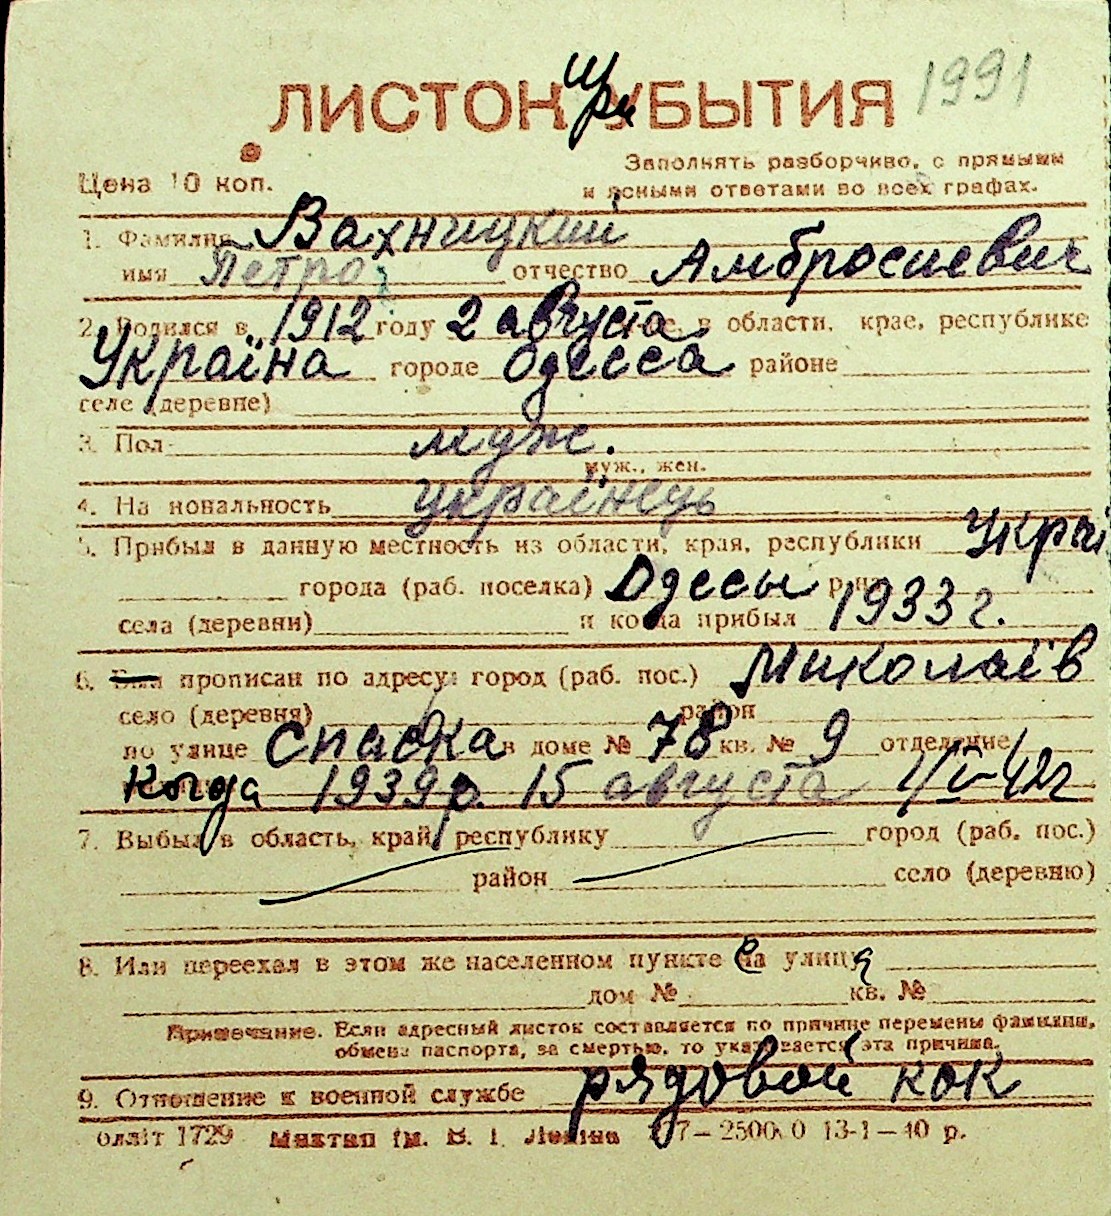 ЛИСТОК при УБЫТИЯ 1991
Цена 10 коп.
Заполнять разборчиво, с прямыми
и ясными ответами во всех графах.
1. Фамилия Вахницкий
имя Петро отчество Амбросиевич
2. Родился в 1912 году 2 августа мес. в области, крае, республике
Україна городе Одесса районе
селе (деревне)
3. Пол муж.
муж., жен.
4. Национальность українець
5. Прибыл в данную местность из области, края, республики Украї
города (раб. поселка) Одесы р-на
села (деревни) и когда прибыл 1933 г.
6. Был прописан по адресу: город (раб. пос.) Миколаїв
село (деревня) район
по улице Спаска в доме № 78 кв. № 9 отделение
когда 1939 р. 15 августа 1/IV-42г
7. Выбыл в область, край, республику город (раб. пос.)
район село (деревню)
8. Или переехал в этом же населенном пункте на улицу
дом № кв. №
Примечание. Если адресный листок составляется по причине перемены фамилии,
обмена паспорта, за смертью, то указывается эта причина.
9. Отношение к военной службе рядовой кок
блліт 1729 Миктип ім. В. І. Леніна 13-1—10 р.